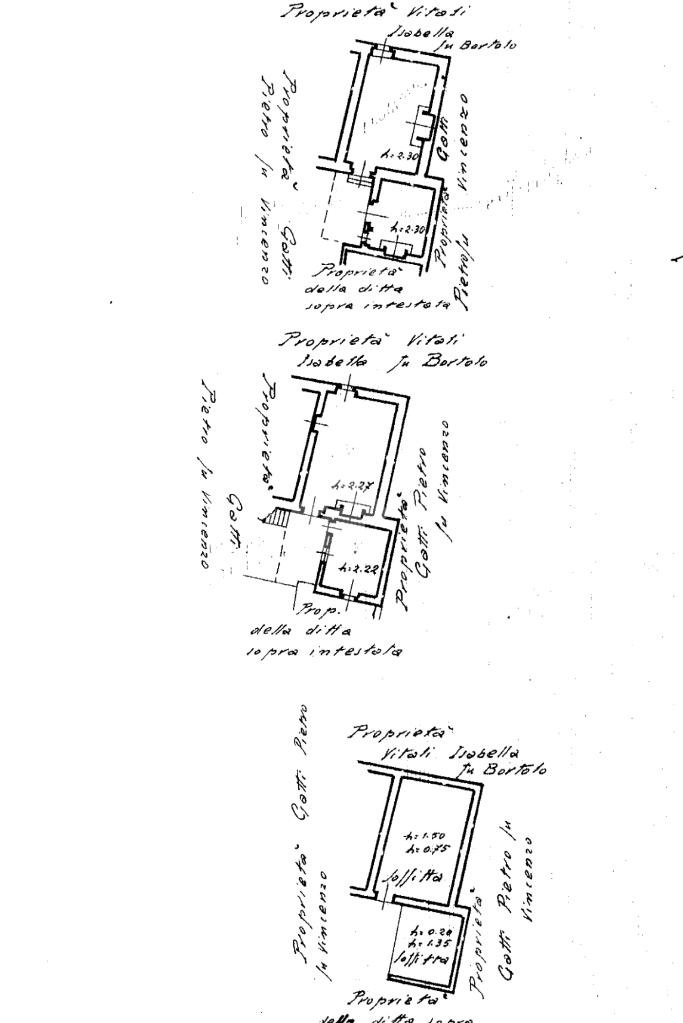 Proprietà Vitali
Isabella
fu Bortolo
Proprietà Gatti
Pietro fu Vincenzo
h=2.30
h=2.30
Proprietà Gatti
Pietro fu Vincenzo
Proprietà
della ditta
sopra intestata
Proprietà Vitali
Isabella fu Bortolo
Proprietà Gatti
Pietro fu Vincenzo
h=2.27
h=2.22
Proprietà
Gatti Pietro
fu Vincenzo
Prop.
della ditta
sopra intestata
Proprietà
Vitali Isabella
fu Bortolo
Proprietà Gatti Pietro
fu Vincenzo
h=1.50
h=0.75
soffitta
h=0.20
h=1.35
soffitta
Proprietà
Gatti Pietro fu
Vincenzo
Proprietà
della ditta sopra